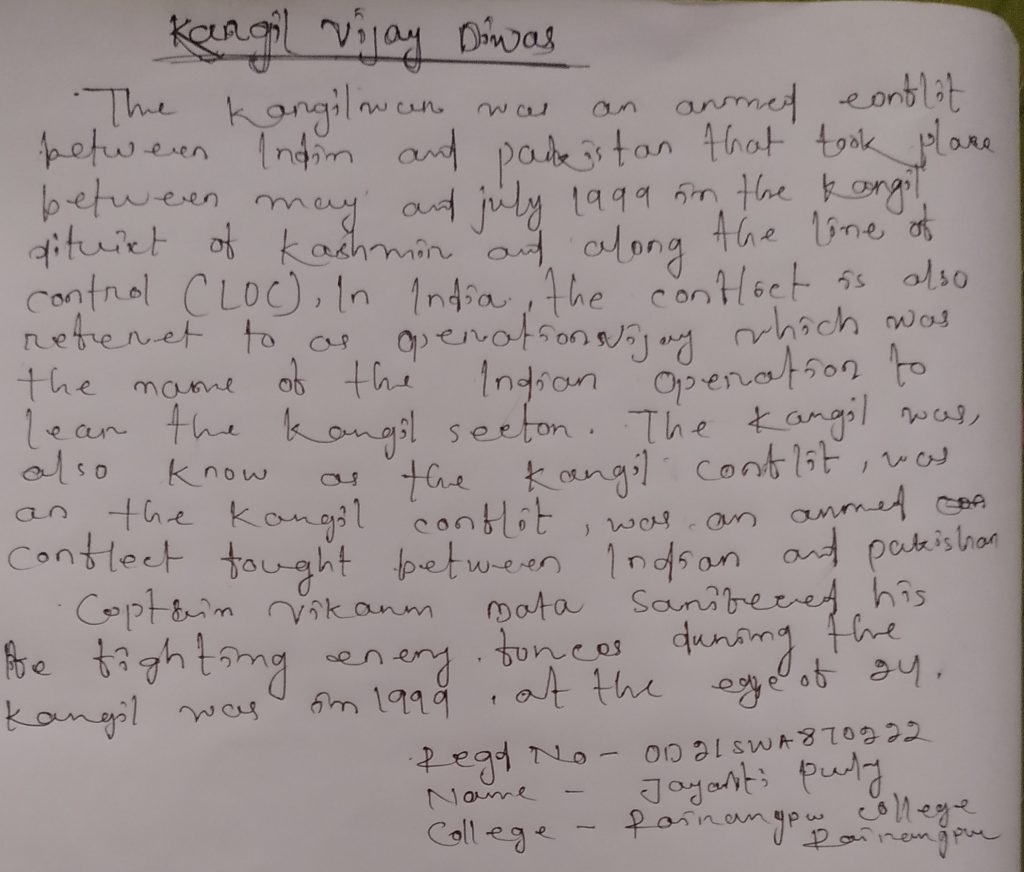 Kargil Vijay Diwas
The Kargil war was an armed conflit
between Indim and pakistan that took plase
between may and july 1999 in the Kargil
dituixt of Kashmir and along the line of
control (LOC), In India, the conflict is also
referret to as operation vijay which was
the name of the Indian operation to
lean the Kargil seetor. The Kargil was,
also know as the Kargil conflit, was
an the Kargil conflit, was an armed
conflect fought between Indian and pakishan
Captain vikarm Data his
fighting enemy. forces during the
Kargil was in 1999, at the ege of 24.
Regd No - OD21SWA870222
Name - Jayanti
College - Rairangpur College
Rairangpur